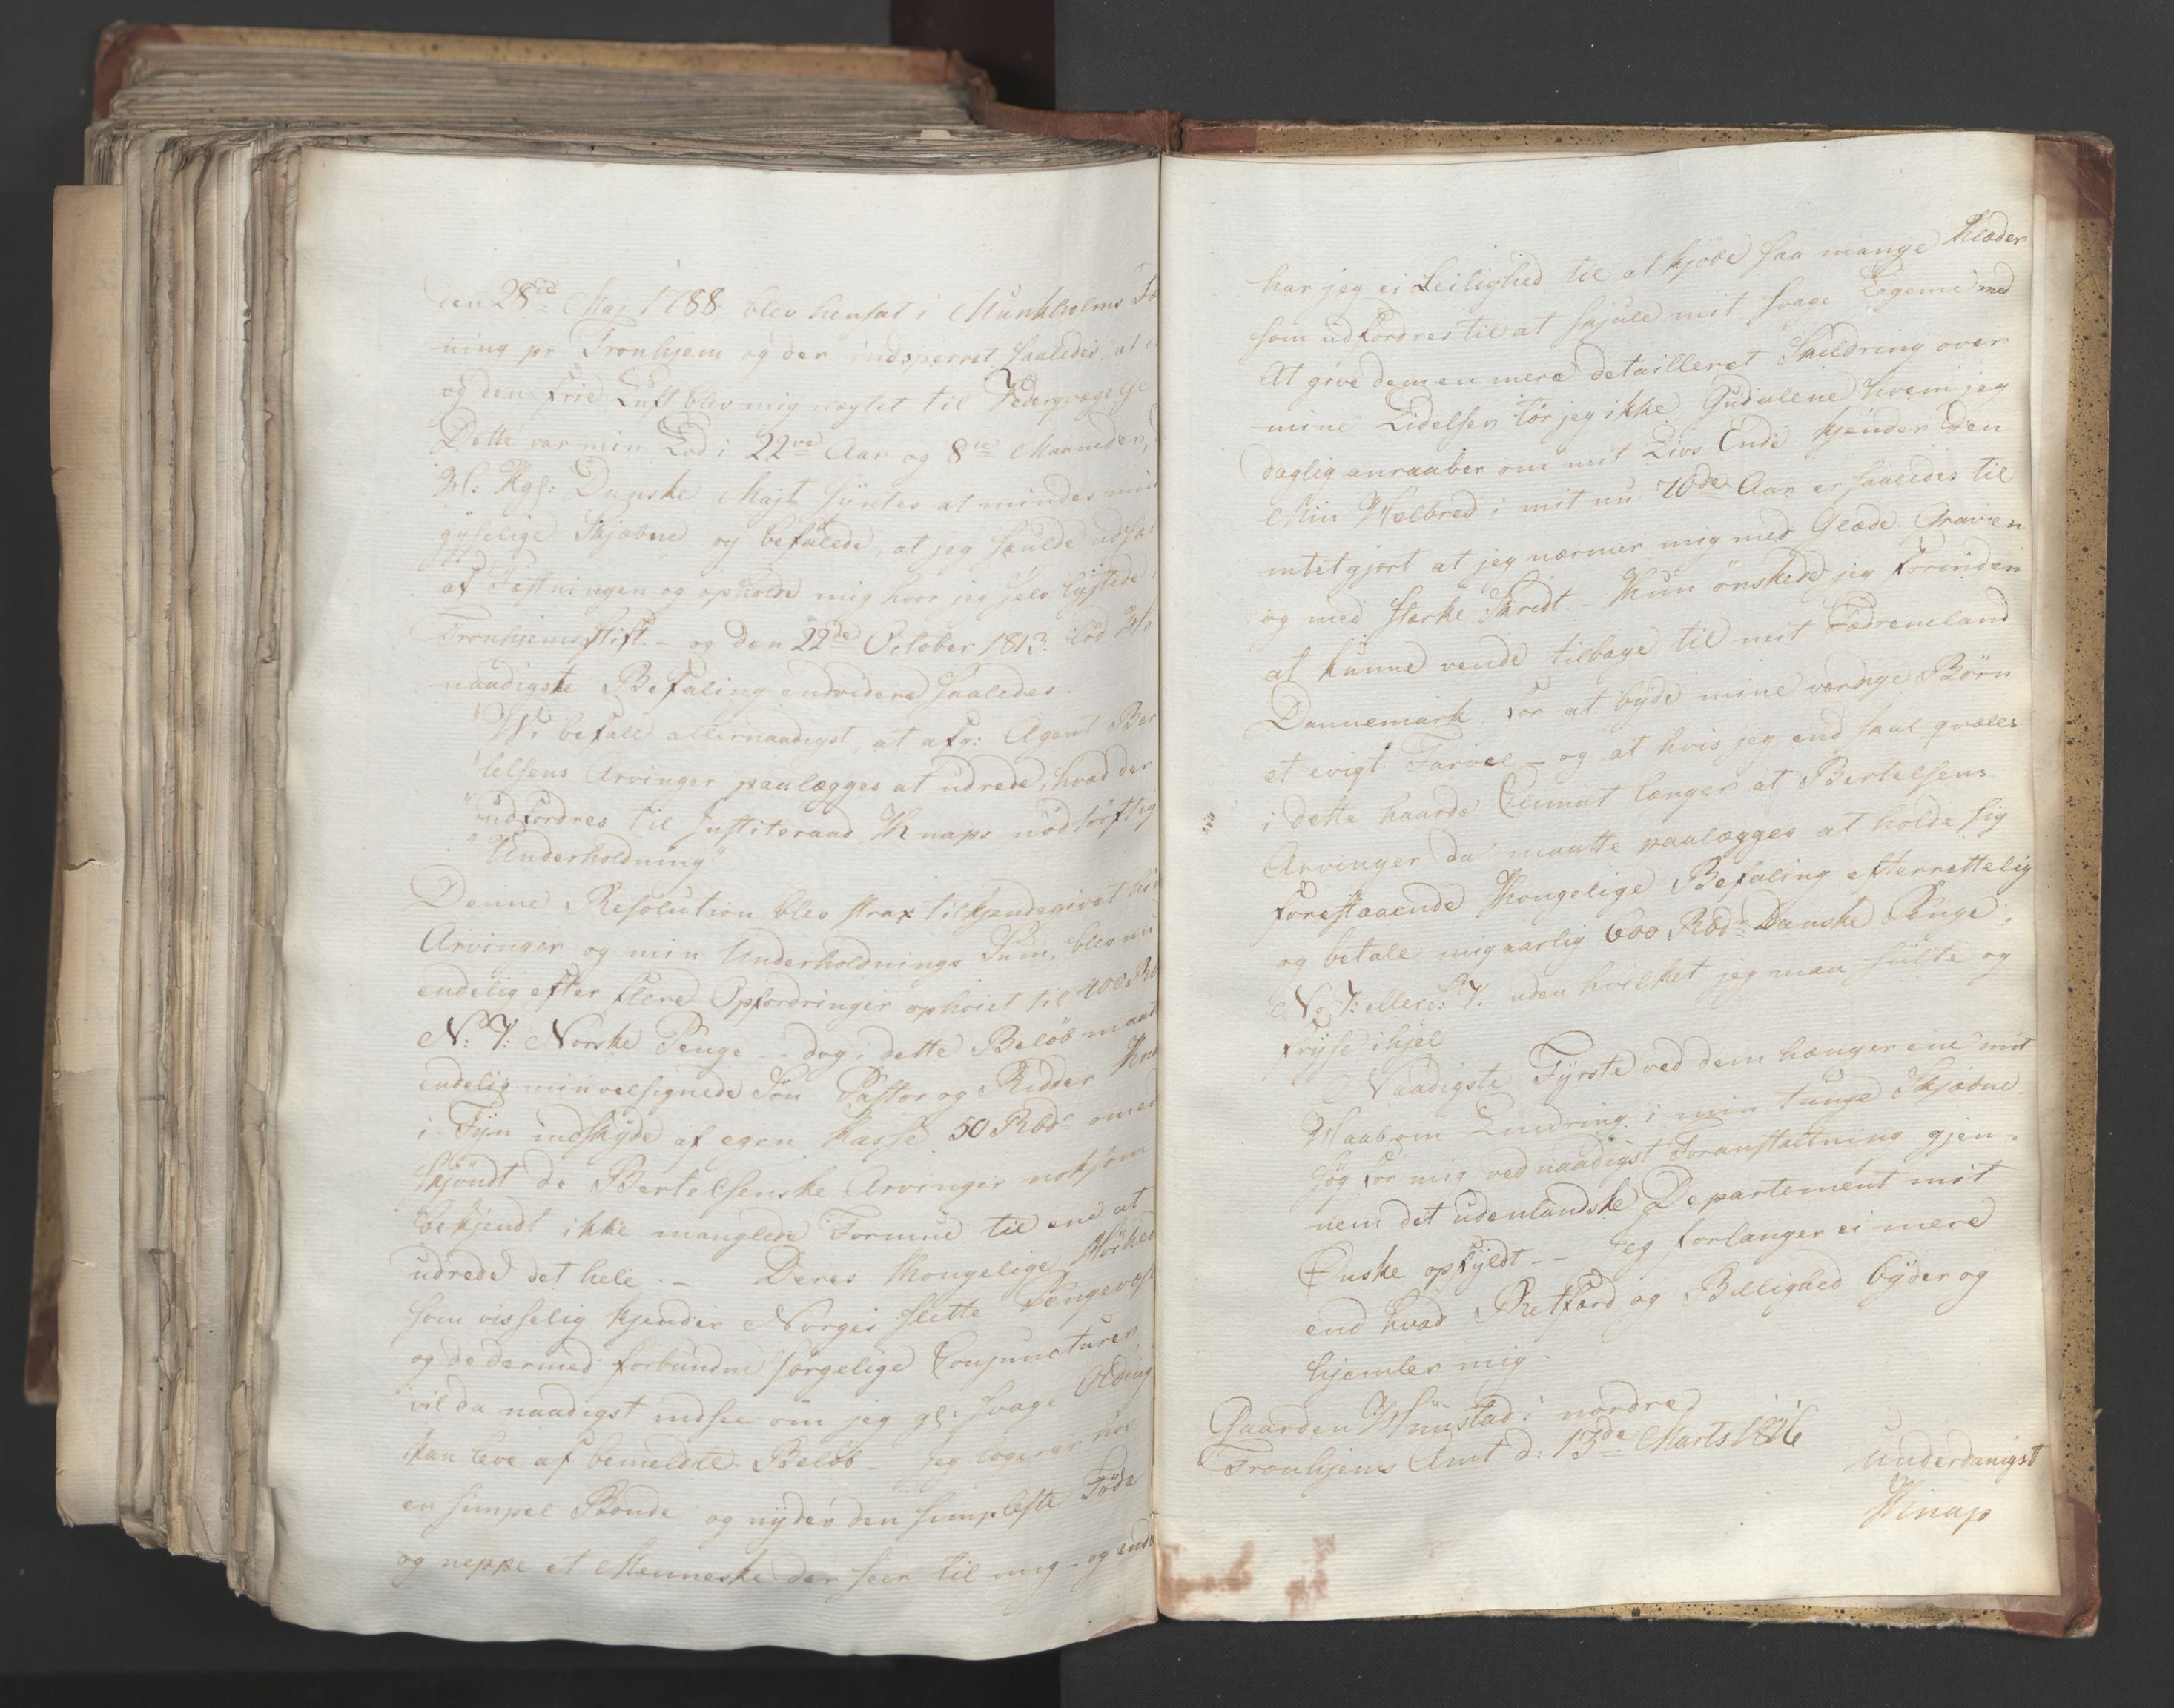 den 28de Maj 1788 blev hensat i Munkholms Fæ
ning pr Tronhjem og der indsperret saaledes, at
og den frie Luft blev mig nægtet til Vedergvægelse
Dette var min Lod i 22ve Aar og 8te Maaneder,
Hs: Kgl: Danske Majt syntes at mindes min
gyselige Skjæbne og befalede, at jeg skulde udsæt
af Fæstningen og opholde mig hvor jeg selv lystede
Tronhjems Stift. - og den 22de October 1813. lød Hs
naadigste Befaling endvidere saaledes.
"Vi befale allernaadigst, at afg: Agent Ber
"telsens Arvinger paalægges at udrede, hvad der
"udfordres til Justitsraad Knaps nødtørftig
"Underholdning"
Denne Resolution blev strax tilkjendegivet hi
Arvinger og min Underholdnings Sum, blev nu
endelig efter flere Opfordringer ophøiet til 400 Rb
N: V: Norske Penge -- dog i dette Beløb maat
endelig min velsignede Søn Pastor og Ridder Kna
i Fyn indskyde af egen Kasse 50 Rbdr omen
skjøndt de Bertelsenske Arvinger noksom
bekjendt ikke manglede Formue til ene at
udrede det hele. - Deres Kongelige Høihed
som visselig kjender Norges slette Pengevæs
og de dermed forbundne sørgelige Conjuncturer,
vil da naadigst indsee om jeg gl: svage Olding
kan leve af bemeldte Beløb - jeg logerer hos
en simpel Bonde og nyder den simpleste Føde
og neppe et Menneske der seer til mig - og end
har jeg ei Leilighed til at kjøbe saa mange Klæder
som udfordres til at skjule mit svage Legeme med
At give dem en mere detailleret Skildring over
mine Lidelser tør jeg ikke, Gud alene hvem jeg
daglig anraaber om mit Livs Ende kjender den
Min Helbred i mit nu 70de Aar er saaledes til
intetgjort at jeg nærmer mig med Glæde Graven
og med stærke Skridt. - Kun ønskede jeg forinden
at kunne vende tilbage til mit Fædreneland
Dannemark, for at byde mine værdige Børn
et evigt Farvel - og at hvis jeg end skal qvæles
i dette haarde Climat længer at Bertelsens
Arvinger da maatte paalægges at holde sig
forestaaende Kongelige Befaling efterrettelig
og betale mig aarlig 600 Rbdr Danske Penge,
N: V: eller S: V: uden hvilket jeg maa sulte og
fryse ihjel
Naadigste Fyrste ved dem hænger ene mit
Haab om Lindring i min tunge Skjæbne
søg for mig ved naadigst Foranstaltning gjen-
nem det udenlandske Departement mit
Ønske opfyldt -- Jeg forlanger ei mere
end hvad Retfærd og Billighed byder og
hjemler mig.
Gaarden Hunstad i nordre
Tronhjems Amt d: 13de Marts 1816
underdanigst
Knap